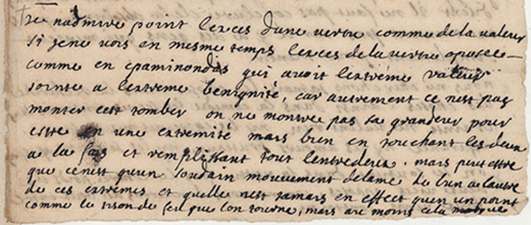 Je nadmire point lexces dune vertu comme de la valeur
si jene vois en mesme temps lexces de la vertu oposee
comme en epaminondas qui avoit lextreme valeur
jointe a lextreme benignité, car autrement ce nest pas
monter cest tomber on ne montre pas sa grandeur pour
estre en une extremité mais bien en touchant les deux
a la fois et remplissant tout lentredeux. mais peut estre
que ce nest quun soudain mouvement delame de lun a lautre
de ces extremes et quelle nest jamais en effect quen un point
comme le tison de feu que lon tourne, mais au moins cela marque